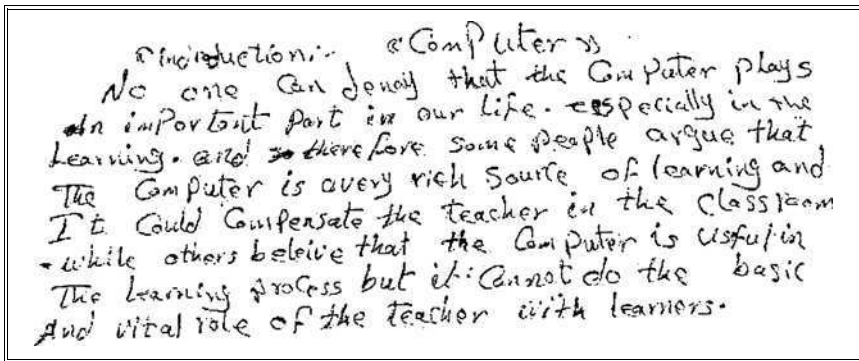 Introduction:- «Computer».
No one can denay that the Computer plays
an important part in our life. especially in the
Learning. and therefore some people argue that
The Computer is avery rich source of learning and
It Could Compensate the teacher in the classroom
- while others beleive that the Computer is usful in
The Learning process but it Cannot do the basic
And vital role of the teacher with learners.